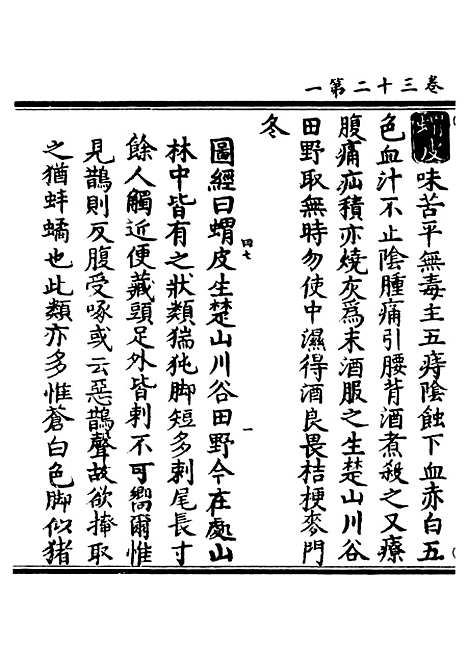 卷三十二第一
蝟皮味苦平無毒主五痔陰蝕下血赤白五
色血汁不止陰腫痛引腰背酒煮殺之又療
腹痛疝積亦燒灰爲末酒服之生楚山川谷
田野取無時勿使中濕得酒良畏桔梗麥門
冬
四七
一
圖經曰蝟皮生楚山川谷田野今在處山
林中皆有之狀類猯㹠脚短多刺尾長寸
餘人觸近便藏頭足外皆刺不可嚮爾惟
見鵲則反腹受啄或云惡鵲聲故欲捧取
之猶蚌蟠也此類亦多惟蒼白色脚似猪